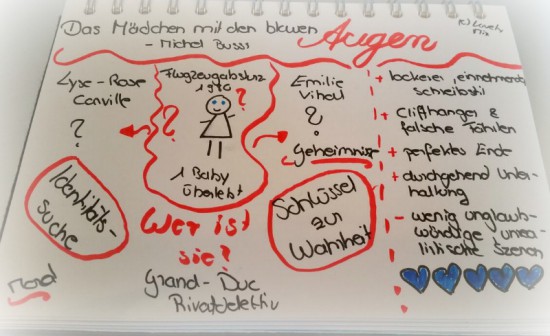 Das Mädchen mit den blauen Augen
- Michel Bussi
(c) Lovely Mix
Lyse-Rose
Carville
?
Flugzeugabsturz
1980
?
?
1 Baby
überlebt
Emilie
Vitral
?
Geheimnisse
Identitäts-
suche
Wer ist
sie?
Schlüssel
zur
Wahrheit
Grand-Duc
Privatdetektiv
Mord
+ lockerer, einnehmender
Schreibstil
+ Cliffhanger &
falsche Fährten
+ perfektes Ende
+ durchgehend Unter-
haltung
- wenig unglaub-
würdige unrea-
listische Szenen